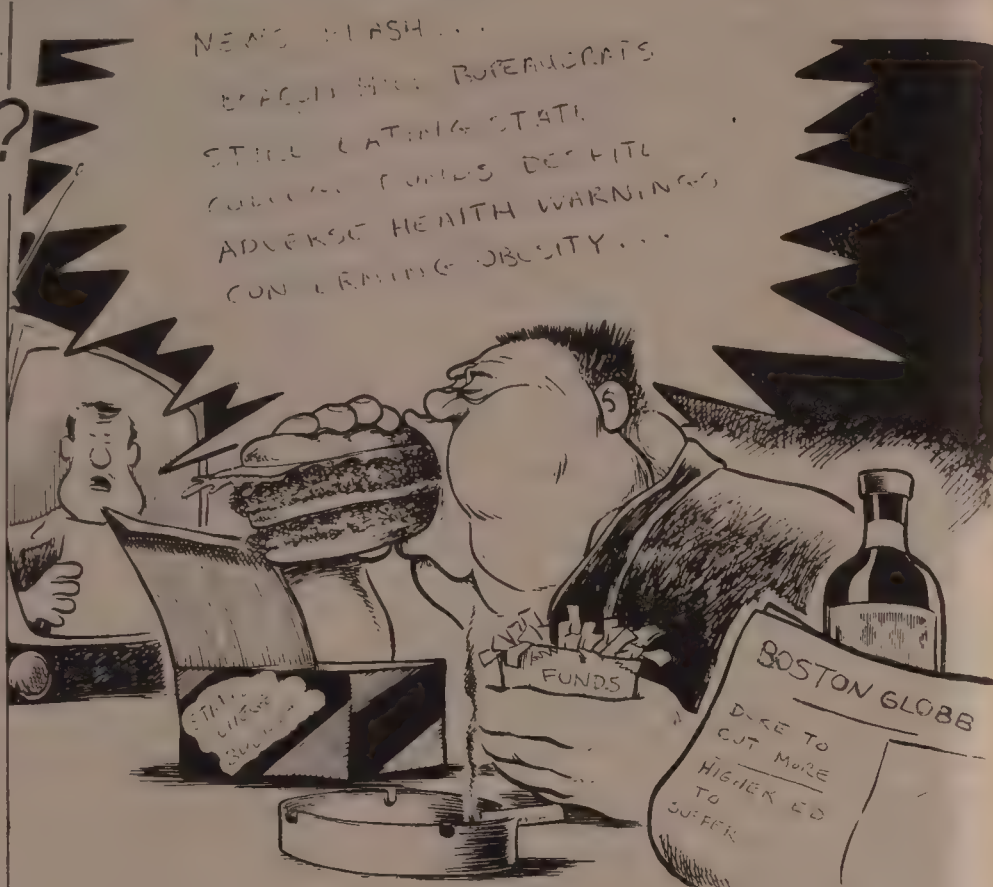 ?
NEWS FLASH...
BEACON HILL BUREAUCRATS
STILL EATING STATE
COLLEGE FUNDS DESPITE
ADVERSE HEALTH WARNINGS
CONCERNING OBESITY...
FUNDS
STATE
BOSTON GLOBE
DUKE TO
CUT MORE
HIGHER ED
TO
SUFFER